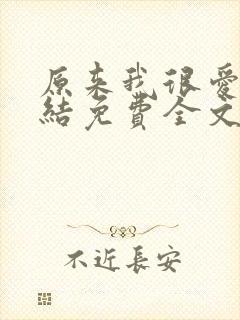 原来我很爱
结免費全文
不近長安